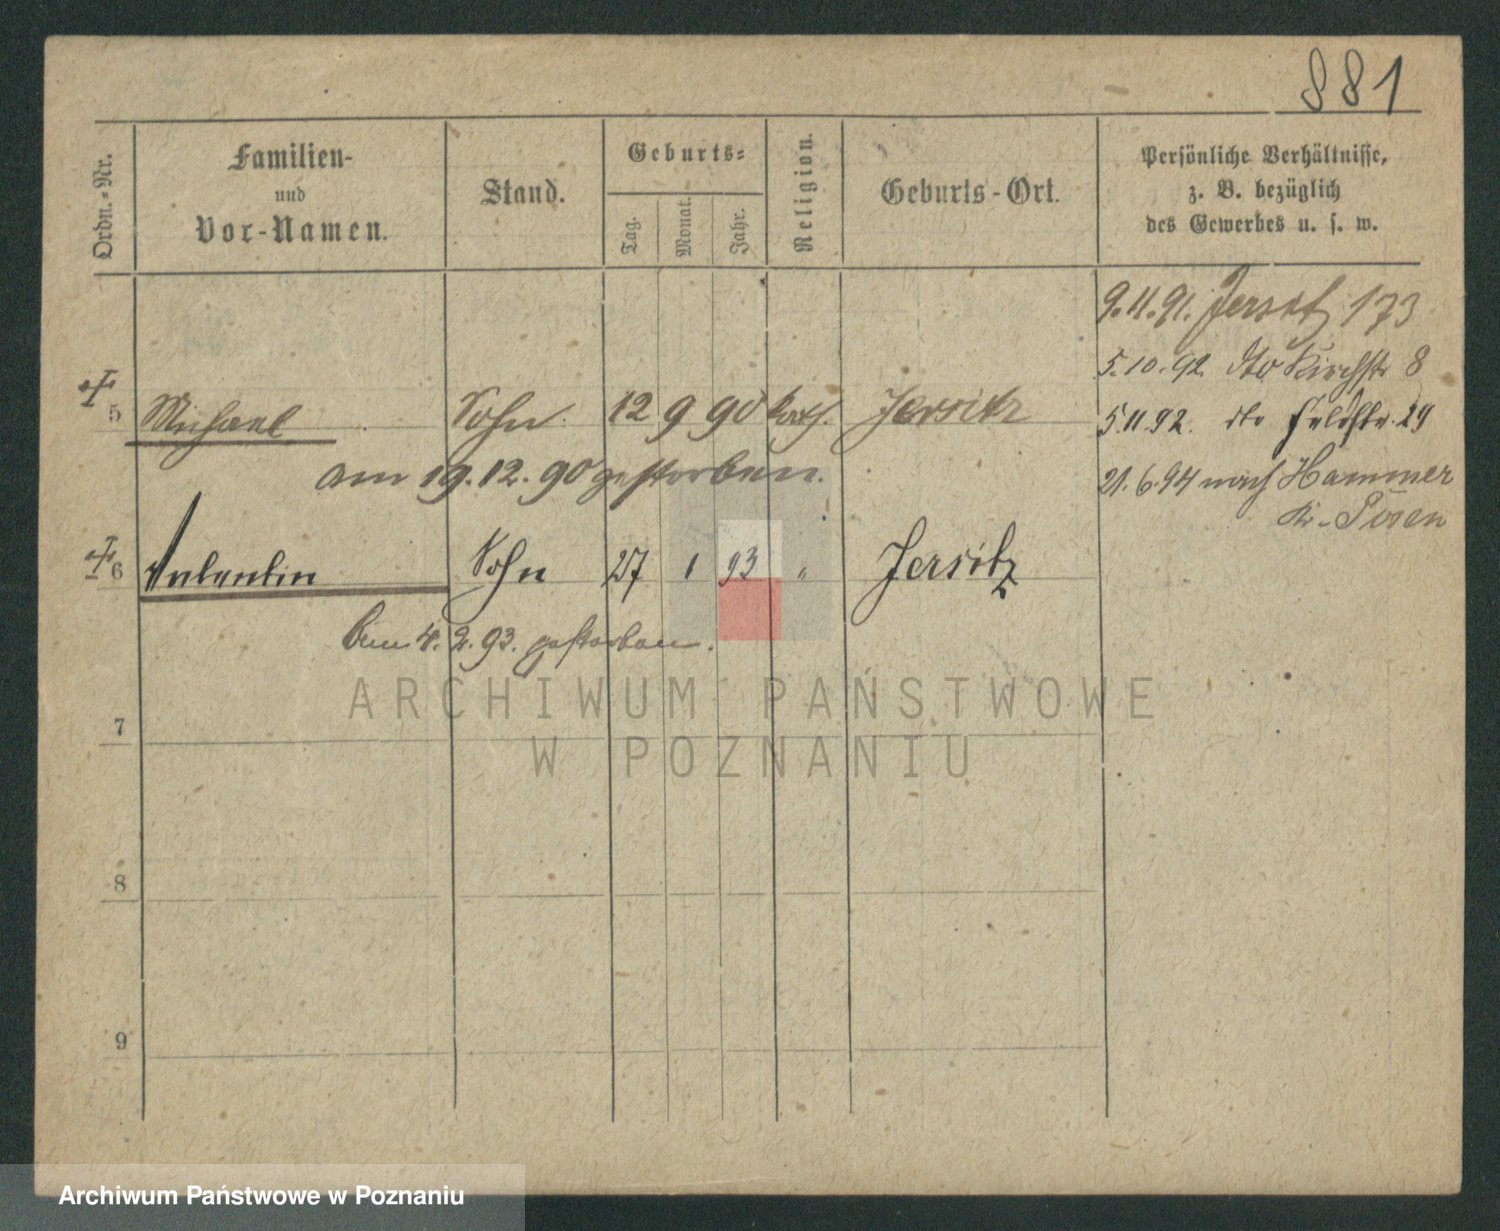 881
Ordn.-Nr.
Familien-
und
Vor-Namen.
Stand.
Geburts-
Tag.
Monat.
Jahr.
Religion.
Geburts-Ort.
Persönliche Verhältnisse,
z. B. bezüglich
des Gewerbes u. s. w.
9.11.91. Jersitz 173
5.10.92. dto Kirchstr 8
5 Michael Sohn. 12 9 90 kath. Jersitz
5.11.92. dto Feldstr. 29
am 19.12.90 gestorben.
21.6.94 nach Hammer
Kr. Posen
6 Valentin Sohn 27 1 93 " Jersitz
4.2.93. gestorben.
ARCHIWUM PAŃSTWOWE
W POZNANIU
7
8
9
Archiwum Państwowe w Poznaniu